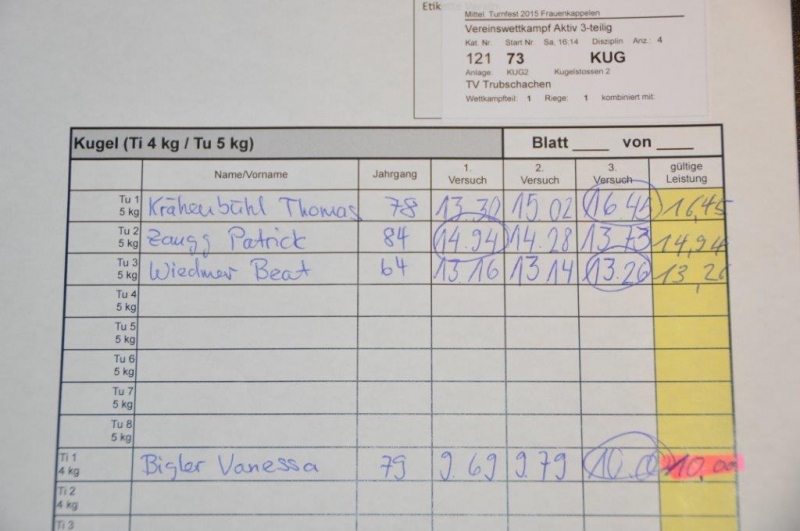 Mittel. Turnfest 2015 Frauenkappelen
Vereinswettkampf Aktiv 3-teilig
Kat. Nr. Start Nr Sa, 16:14 Disziplin Anz.: 4
121 73 KUG
Anlage: KUG2 Kugelstossen 2
TV Trubschachen
Wettkampfteil: 1 Riege: 1 kombiniert mit:
Kugel (Ti 4 kg / Tu 5 kg) Blatt ____ von ____
Name/Vorname Jahrgang 1. Versuch 2. Versuch 3. Versuch gültige Leistung
Tu 1 5 kg Krähenbühl Thomas 78 13.30 15.02 16.45 16,45
Tu 2 5 kg Zaugg Patrick 84 14.94 14.28 13.73 14,94
Tu 3 5 kg Wiedmer Beat 64 13.16 13.14 13.26 13,26
Tu 4 5 kg
Tu 5 5 kg
Tu 6 5 kg
Tu 7 5 kg
Tu 8 5 kg
Ti 1 4 kg Bigler Vanessa 79 9.69 9.79 10.0 10,00
Ti 2 4 kg
Ti 3